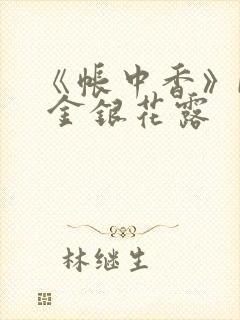 《帐中香》
金银花露
林继生